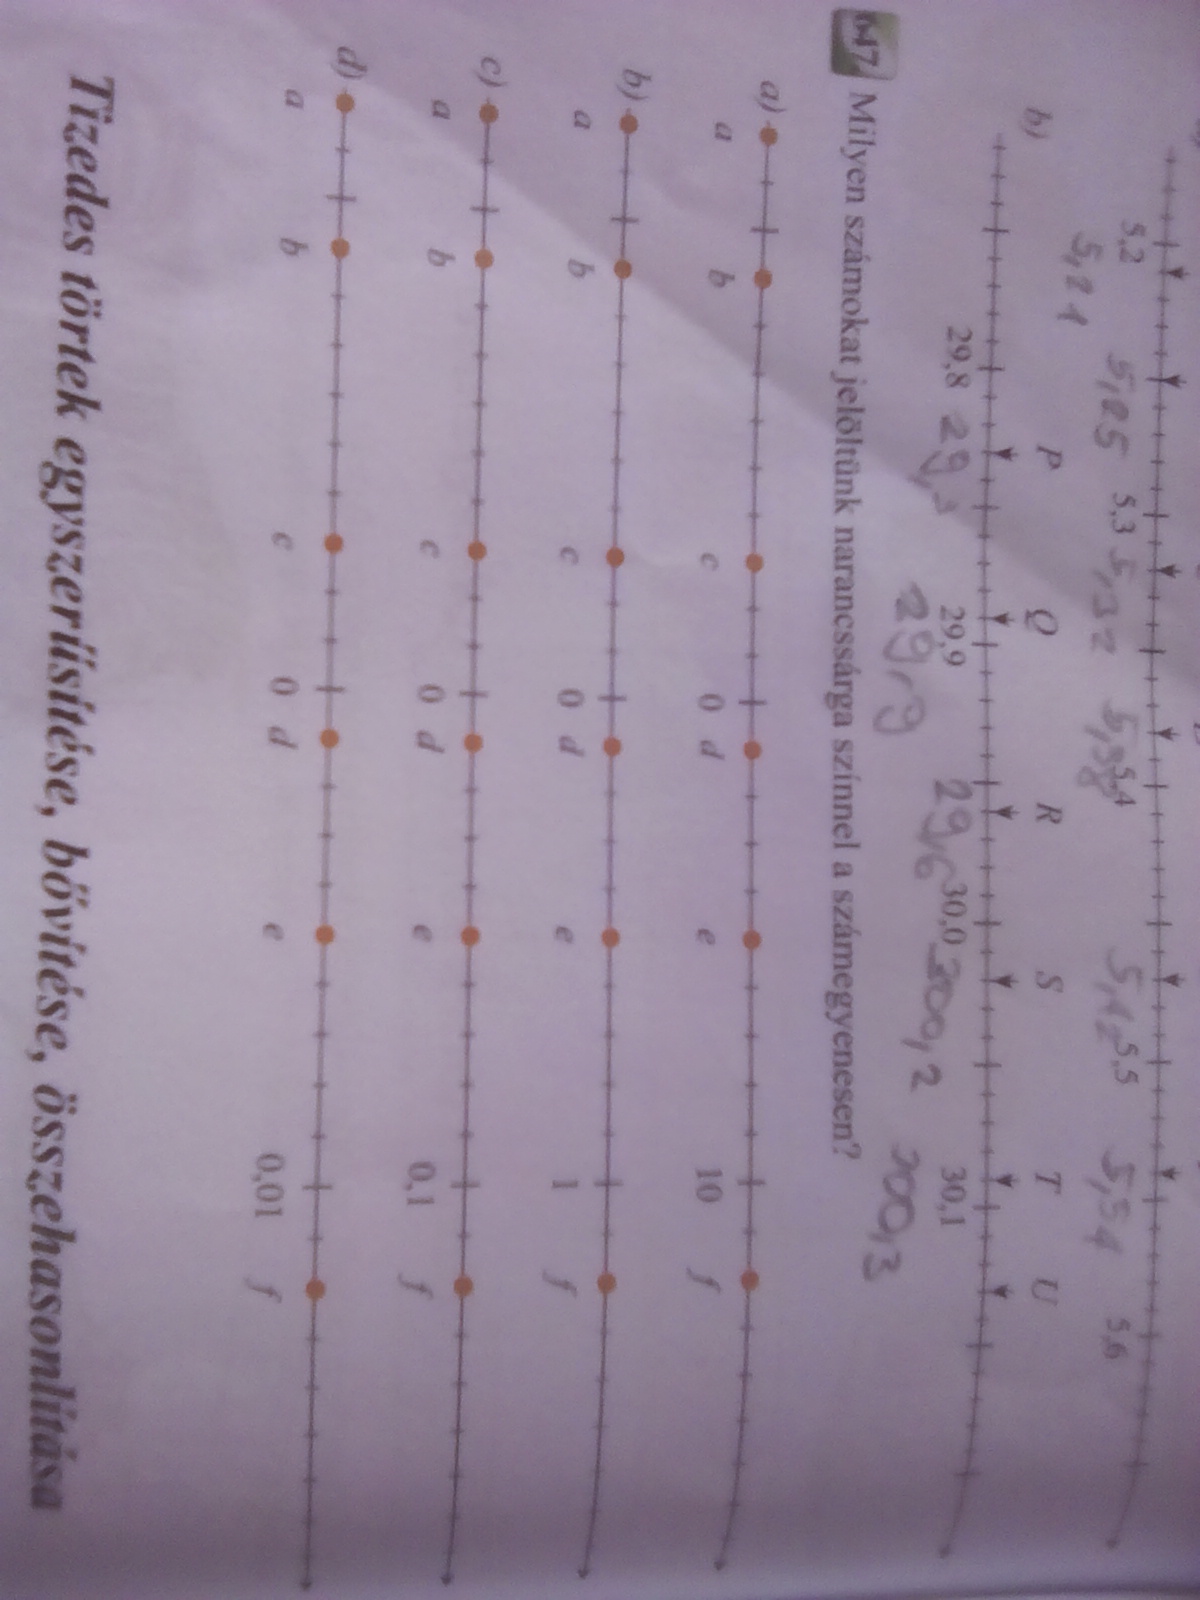 5,2 5,3 5,4 5,5 5,6
5,21 5,25 5,32 5,38 5,54
b) P Q R S T U
29,8 29,9 30,0 30,1
29,3 29,9 29,6 300,2 300,3
Milyen számokat jelöltünk narancssárga színnel a számegyenesen?
a)
a b c 0 d e 10 f
b)
a b c 0 d e 1 f
c)
a b c 0 d e 0,1 f
d)
a b c 0 d e 0,01 f
Tizedes törtek egyszerűsítése, bővítése, összehasonlítása